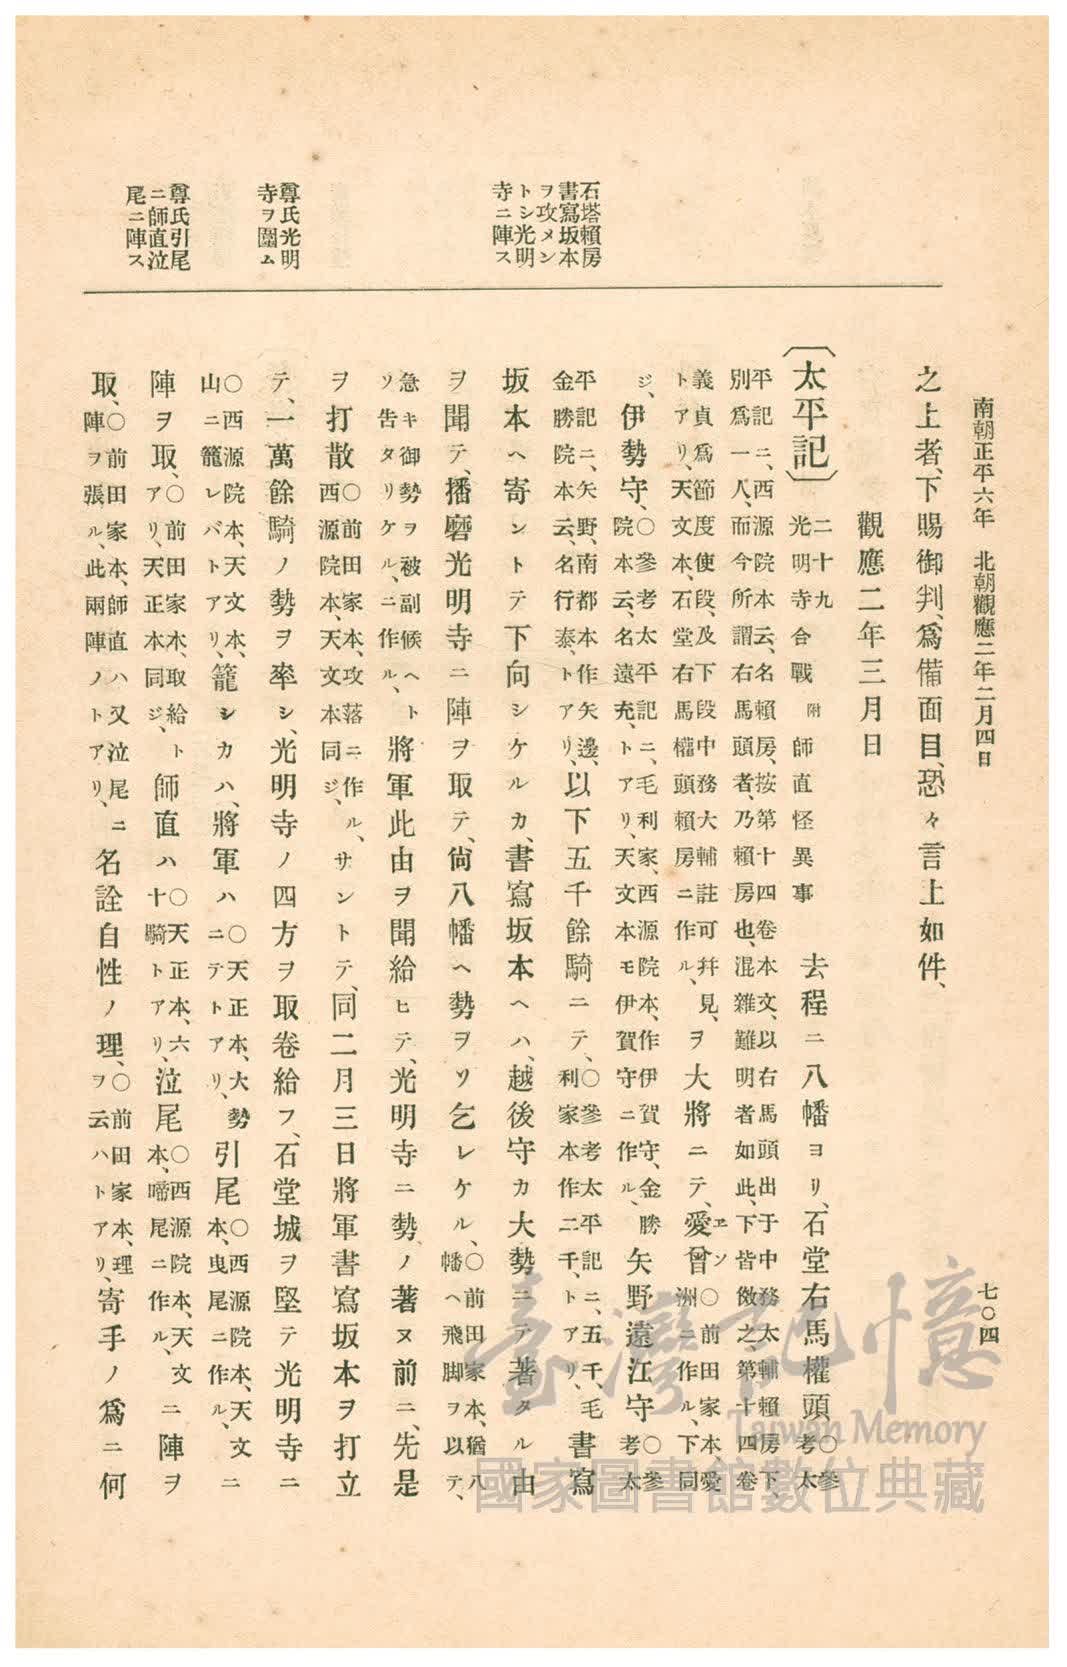 南朝正平六年　北朝觀應二年二月四日
七〇四
石塔賴房
書寫坂本
ヲ攻メン
トシ光明
寺ニ陣ス
尊氏光明
寺ヲ圍ム
尊氏引尾
ニ師直泣
尾ニ陣ス
之上者、下賜御判、爲備面目、恐々言上如件、
觀應二年三月日
〔太平記〕二十九光明寺合戰附師直怪異事　去程ニ八幡ヨリ、石堂右馬權頭、〇參考太
平記ニ、西源院本云、名賴房、按第十四卷本文、以右馬頭出于中務太輔賴房下、
別爲一人、而今所謂右馬頭者、乃賴房也、混雜難明者如此、下皆倣之、第十四卷
義貞爲節度使段、及下段中務大輔註可幷見、
トアリ、天文本、石堂右馬權頭賴房ニ作ル、ヲ大將ニテ、愛曾〇前田家本、愛洲ニ作ル、下同
エソ
ジ、伊勢守、〇參考太平記ニ、毛利家、西源院本、作伊賀守、金勝院本云、名遠充、トアリ、天文本モ伊賀守ニ作ル、矢野遠江守〇參考太
平記ニ、矢野、南都本作矢邊、
金勝院本云、名行泰、トアリ、以下五千餘騎ニテ、〇參考太平記ニ、五千、毛利家本作二千、トアリ、書寫
坂本ヘ寄ントテ下向シケルカ、書寫坂本ヘハ、越後守カ大勢ニテ著タル由
ヲ聞テ、播磨光明寺ニ陣ヲ取テ、尙八幡ヘ勢ヲソ乞レケル、〇前田家本、猶八幡ヘ飛脚ヲ以テ、
急キ御勢ヲ被副候ヘト
ソ告タリケル、ニ作ル、將軍此由ヲ聞給ヒテ、光明寺ニ勢ノ著ヌ前ニ、先是
ヲ打散〇前田家本、攻落ニ作ル、西源院本、天文本同ジ、サントテ、同二月三日將軍書寫坂本ヲ打立
テ、一萬餘騎ノ勢ヲ率シ、光明寺ノ四方ヲ取卷給フ、石堂城ヲ堅テ光明寺ニ
〇西源院本、天文本、
山ニ籠レバトアリ、籠シカハ、將軍ハ〇天正本、大勢ニテトアリ、引尾〇西源院本、天文本、曳尾ニ作ル、ニ
陣ヲ取、〇前田家本、取給トアリ、天正本同ジ、師直ハ〇天正本、六十騎トアリ、泣尾〇西源院本、天文本、啼尾ニ作ル、ニ陣ヲ
取、〇前田家本、師直ハ又泣尾ニ陣ヲ張ル、此兩陣ノトアリ、名詮自性ノ理、〇前田家本、理ヲ云ハトアリ、寄手ノ爲ニ何
臺灣記憶
Taiwan Memory
國家圖書館數位典藏